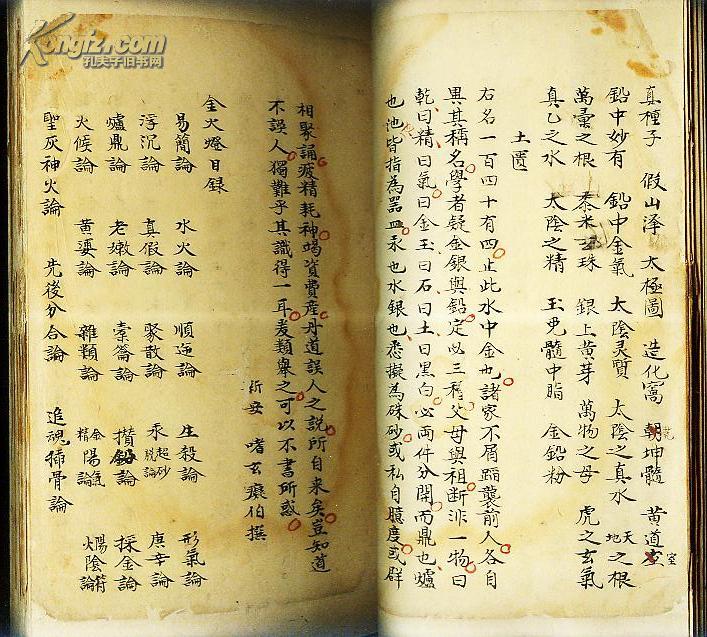 Kongfz.com
孔夫子旧书网
真種子 假山泽 太極圖 造化窩 乾坤髓 黄道室
鉛中妙有 鉛中金氣 太陰灵質 太陰之真水 天地之根
萬彙之根 黍米玄珠 銀上黄芽 萬物之母 虎之玄氣
真乙之水 太陰之精 玉兎髓中脂 金鉛粉
土匮
右名一百四十有四止此水中金也諸家不屑蹈襲前人各自
異其稱名學者疑金銀與鉛定以三種父母與祖断非一物曰
乾曰精曰氣曰金玉曰石曰土曰黑白必两件分開而鼎也爐
也池皆指為噐皿汞也水銀也悉擬為硃砂或私自臆度或群
相聚誦疲精耗神竭資費産丹道誤人之説所自来矣豈知道
不誤人獨難乎其識得一耳爰類舉之可以不書所惑
新安 嗜玄癡伯撰
金火燈目録
易簡論 水火論 順逆論 生殺論 形氣論
浮沉論 真假論 聚散論 汞超砂脱論 庚辛論
爐鼎論 老嫩論 橐籥論 攅鉛論 採金論
火候論 黄婆論 雜類論 金精陽氣論 陽火陰符論
聖灰神火論 先後分合論 追魂插骨論